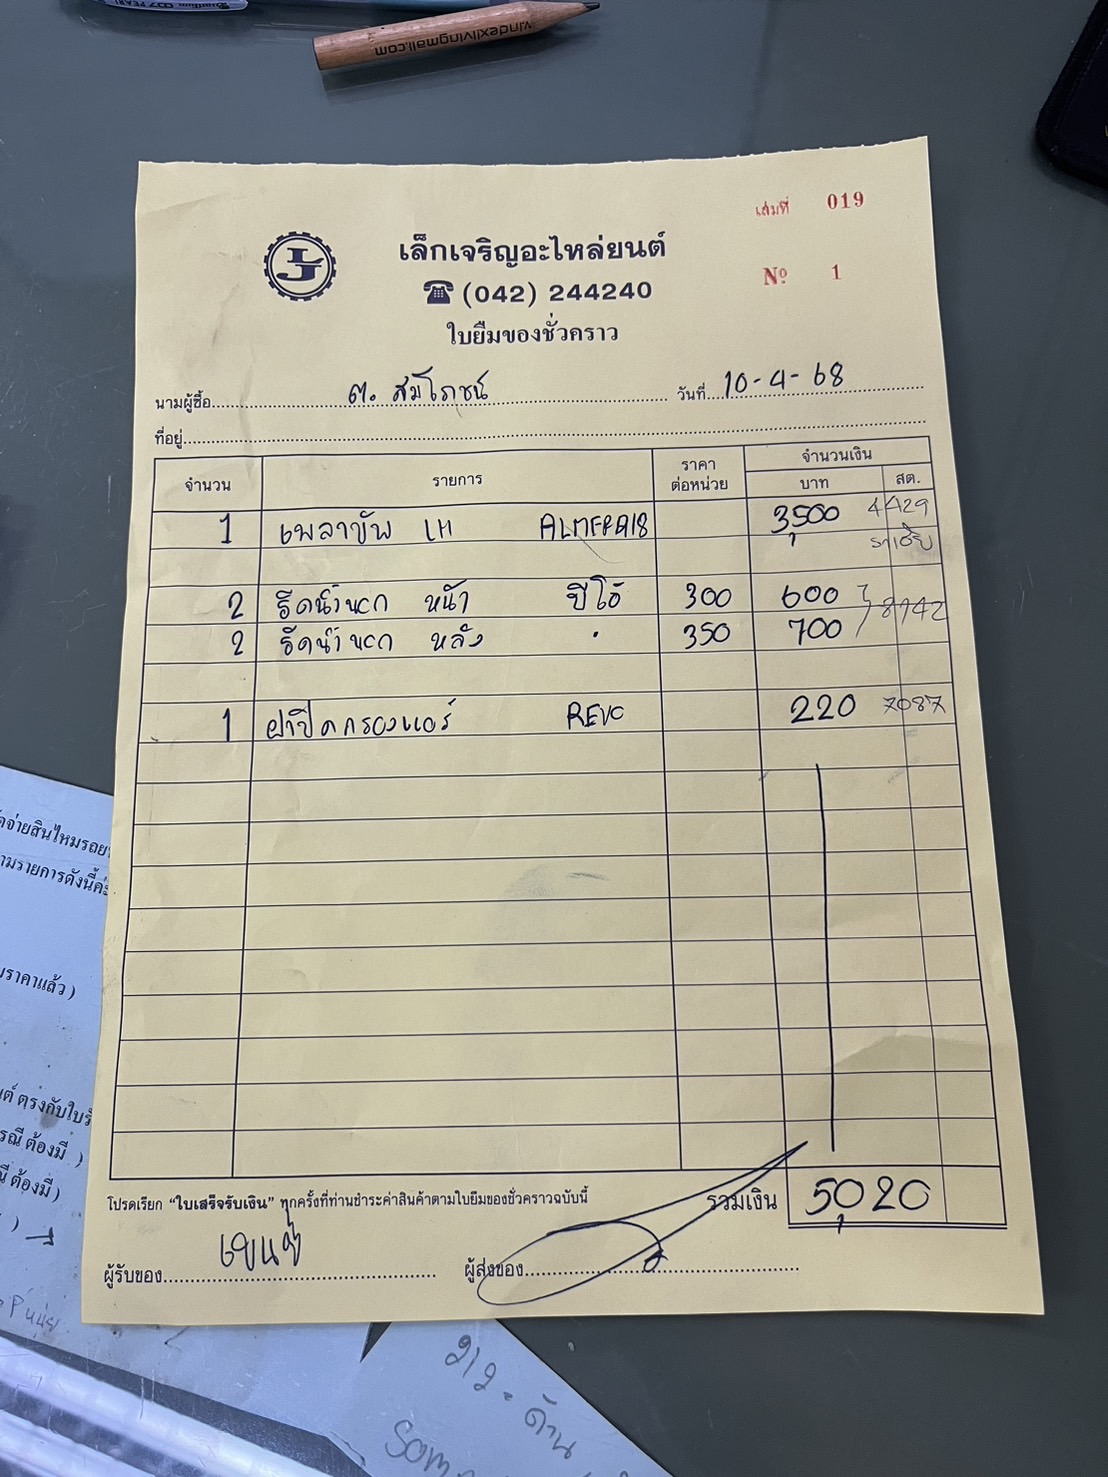 windexlivingmall.com
เล่มที่ 019
เล็กเจริญอะไหล่ยนต์
LJ
Nº 1
(042) 244240
ใบยืมของชั่วคราว
นามผู้ซื้อ ต. สมโภชน์ วันที่ 10-4-68
ที่อยู่
จำนวน รายการ ราคาต่อหน่วย จำนวนเงิน
บาท สต.
1 เพลาขับ LH ALMERA18 3,500 4429
2 รีดน้ำนอก หน้า วีโก้ 300 600 8942
2 รีดน้ำนอก หลัง " 350 700
1 ฝาปิดกรองแอร์ REVO 220 7087
โปรดเรียก “ใบเสร็จรับเงิน” ทุกครั้งที่ท่านชำระค่าสินค้าตามใบยืมของชั่วคราวฉบับนี้ รวมเงิน 5,020
ผู้รับของ ผู้ส่งของ
จ่ายสินไหมรถย
ามรายการดังนี้ค่ะ
ราคาแล้ว )
ต์ ตรงกับใบร
รณี ต้องมี )
ณี ต้องมี )
212. ด้าน